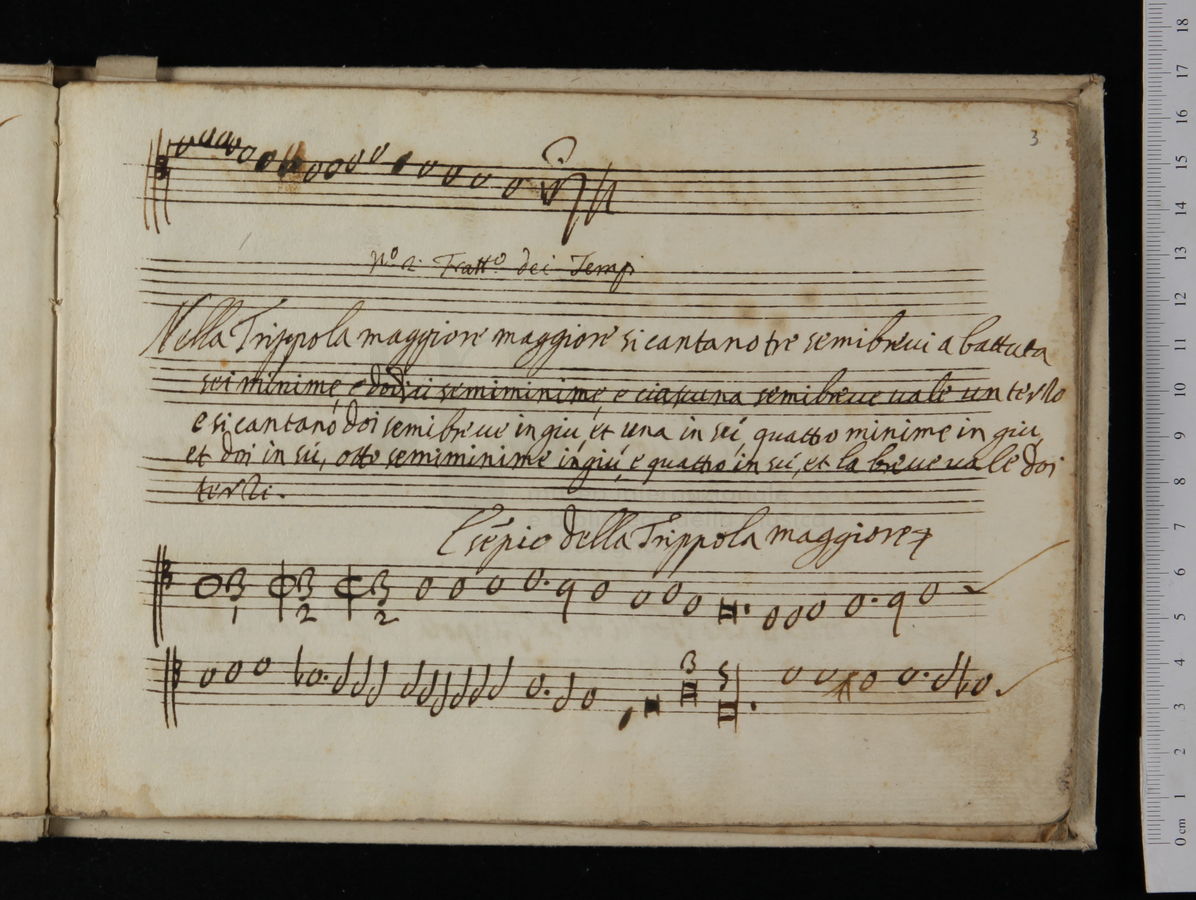 3
Nº 2. Trattº. dei Tempi
Nella Trippola maggiore maggiore si cantano tre semibreui a battuta
sei minime, e dodici semiminime, e ciascuna semibreue uale un terzo
e si cantano doi semibreue in giu, et una in sú, quattro minime in giu,
et doi in sú, otto semiminime in giú, e quattro in sú, et la breue uale doi
terzi.
Esépio della Trippola maggiore
3 3 3
1 2 2
3 5
18
17
16
15
14
13
12
11
10
9
8
7
6
5
4
3
2
1
0 cm